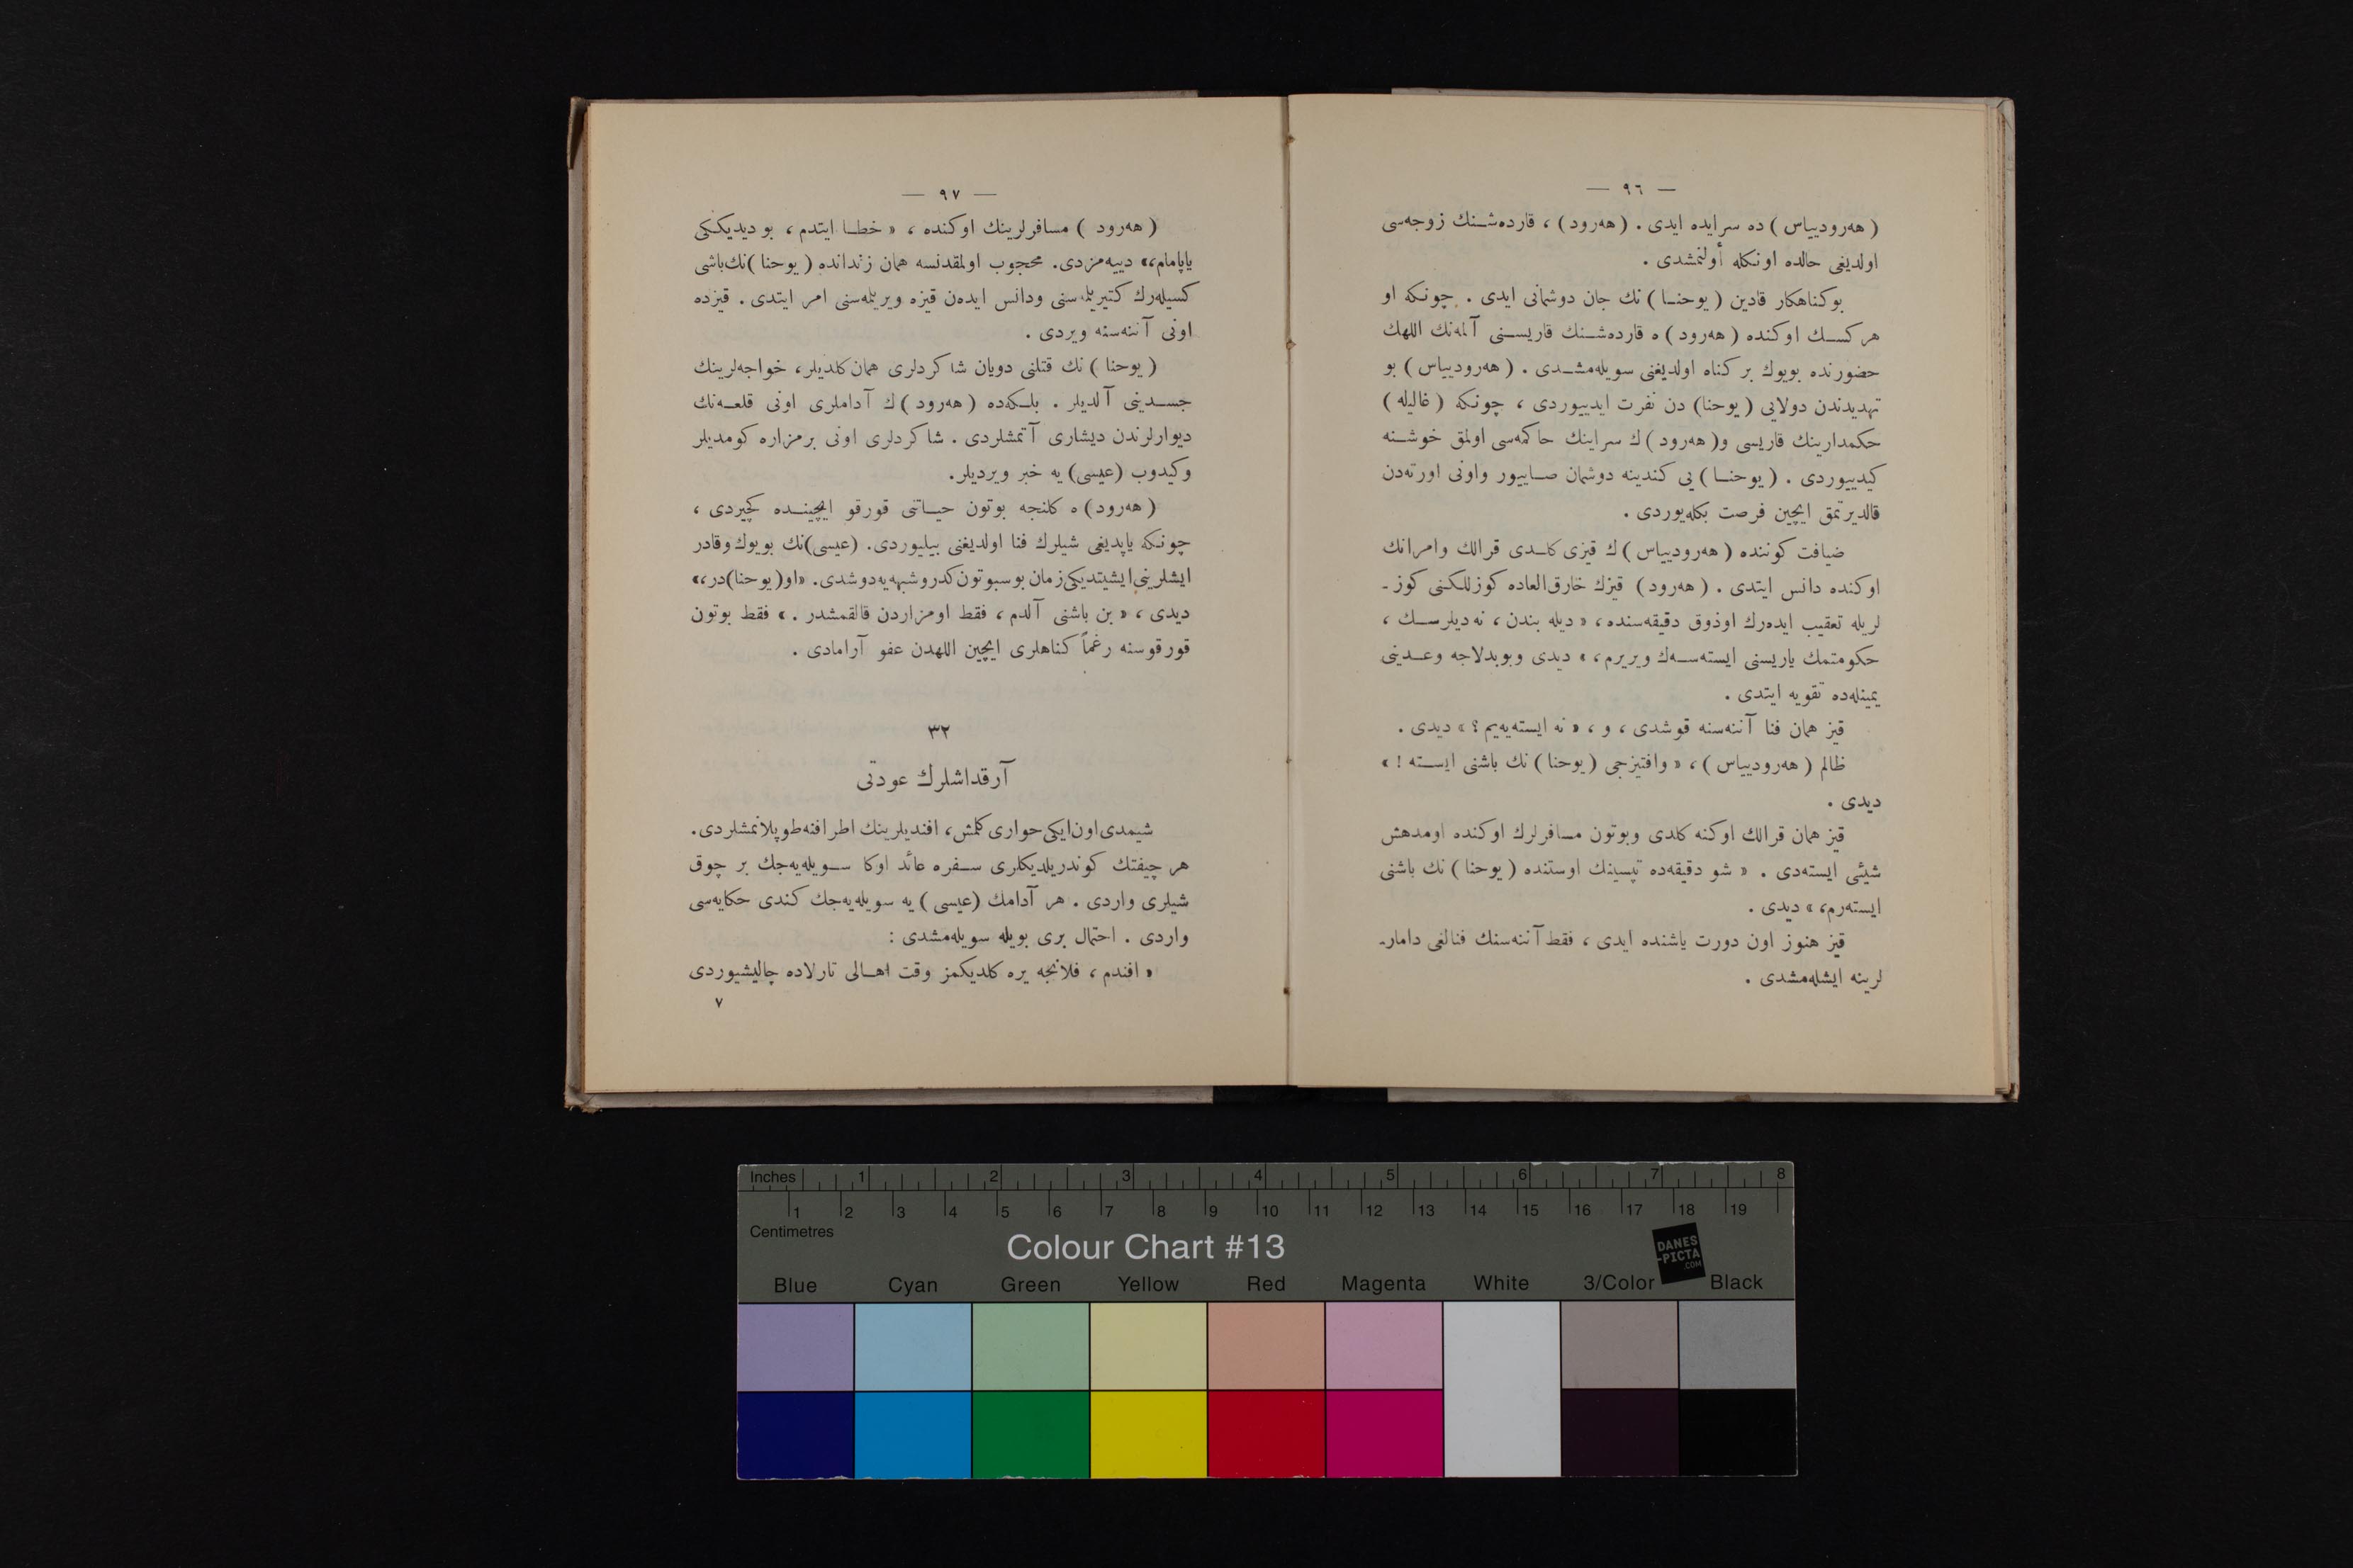 — ٩٦ —
( هه‌رودییاس ) ده سرایده ایدی . ( هه‌رود ) ، قارده‌شـنك زوجه‌سی
اولدیغی حالده اونكله أولنمشدی .
بو كناهكار قادین ( یوحنـا ) نك جان دوشمانی ایدی . چونكه او
هر كسـك اوكنده ( هه‌رود ) ه قارده‌شـنك قاریسـنی آلمه‌نك اللهك
حضورنده بویوك بر كناه اولدیغنی سویله‌مشـدی . ( هه‌رودییاس ) بو
تهدیدندن دولایی ( یوحنا ) دن نفرت ایدییوردی ، چونكه ( غالیله )
حكمدارینك قاریسی و( هه‌رود ) ك سراینك حاكمه‌سی اولمق خوشـنه
كیدییوردی . ( یوحنـا ) یی كندینه دوشمان صـاییور واونی اورته‌دن
قالدیرتمق ایچین فرصت بكله‌یوردی .
ضیافت كوننده ( هه‌رودییاس ) ك قیزی كلـدی قرالك وامرانك
اوكنده دانس ایتدی . ( هه‌رود ) قیزك خارق‌العاده كوزللكنی كوز ـ
لریله تعقیب ایده‌رك اوذوق دقیقه‌سنده ، « دیله بندن ، نه دیلرسـك ،
حكومتمك یاریسنی ایسته‌سـه‌ك ویریرم ، » دیدی وبوبدلاجه وعـدینی
یمینله‌ده تقویه ایتدی .
قیز همان فنا آننه‌سنه قوشدی ، و ، « نه ایسته‌یه‌یم ؟ » دیدی .
ظالم ( هه‌رودییاس ) ، « وافتیزجی ( یوحنا ) نك باشنی ایسـته ! »
دیدی .
قیز همان قرالك اوكنه كلدی وبوتون مسافرلرك اوكنده اومدهش
شیئی ایسته‌دی . « شو دقیقه‌ده تپسینك اوستنده ( یوحنا ) نك باشنی
ایسته‌رم ، » دیدی .
قیز هنوز اون دورت یاشنده ایدی ، فقط آننه‌سنك فنالغی دامارـ
لرینه ایشله‌مشدی .
— ٩٧ —
( هه‌رود ) مسافرلرینك اوكنده ، « خطـا ایتدم ، بو دیدیكـكی
یاپامام ،» دییه‌مزدی. محجوب اولمقدنسه همان زندانده ( یوحنا ) نك‌باشی
كسیله‌رك كتیریلمه‌سنی ودانس ایده‌ن قیزه ویریلمه‌سنی امر ایتدی . قیزده
اونی آننه‌سنه ویردی .
( یوحنا ) نك قتلنی دویان شاكردلری همان كلدیلر ، خواجه‌لرینك
جسـدینی آلدیلر . بلـكه‌ده ( هه‌رود ) ك آداملری اونی قلعـه‌نك
دیوارلرندن دیشاری آتمشلردی . شاكردلری اونی برمزاره كومدیلر
وكیدوب (عیسی) یه خبر ویردیلر.
( هه‌رود ) ه كلنجه بوتون حیـاتنی قورقو ایچینـده كچیردی ،
چونكه یاپدیغی شیلرك فنا اولدیغنی بیلیوردی. (عیسی)نك بویوك وقادر
ایشلرینی ایشیتدیكی زمان بوسبوتون كدر و شبهه‌یه دوشدی. «او( یوحنا)در،»
دیدی ، « بن باشنی آلدم ، فقط اومزاردن قالقمشدر . » فقط بوتون
قورقوسنه رغماً كناهلری ایچین اللهدن عفو آرامادی .
٣٢
آرقداشلرك عودتی
شیمدی اون‌ایكی حواری كلمش، افندیلرینك اطرافنه طوپلانمشلردی.
هر چیفتك كوندریلدیكلری سـفره عائد اوكا سـویله‌یه‌جك بر چوق
شیلری واردی . هر آدامك (عیسی) یه سویله‌یه‌جك كندی حكایه‌سی
واردی . احتمال بری بویله سویله‌مشدی :
« افندم ، فلانجه یره كلدیكمز وقت اهـالی تارلاده چالیشیوردی
٧
Inches 1 2 3 4 5 6 7 8
1 2 3 4 5 6 7 8 9 10 11 12 13 14 15 16 17 18 19
Centimetres
Colour Chart #13
DANES
-PICTA
.COM
Blue Cyan Green Yellow Red Magenta White 3/Color Black